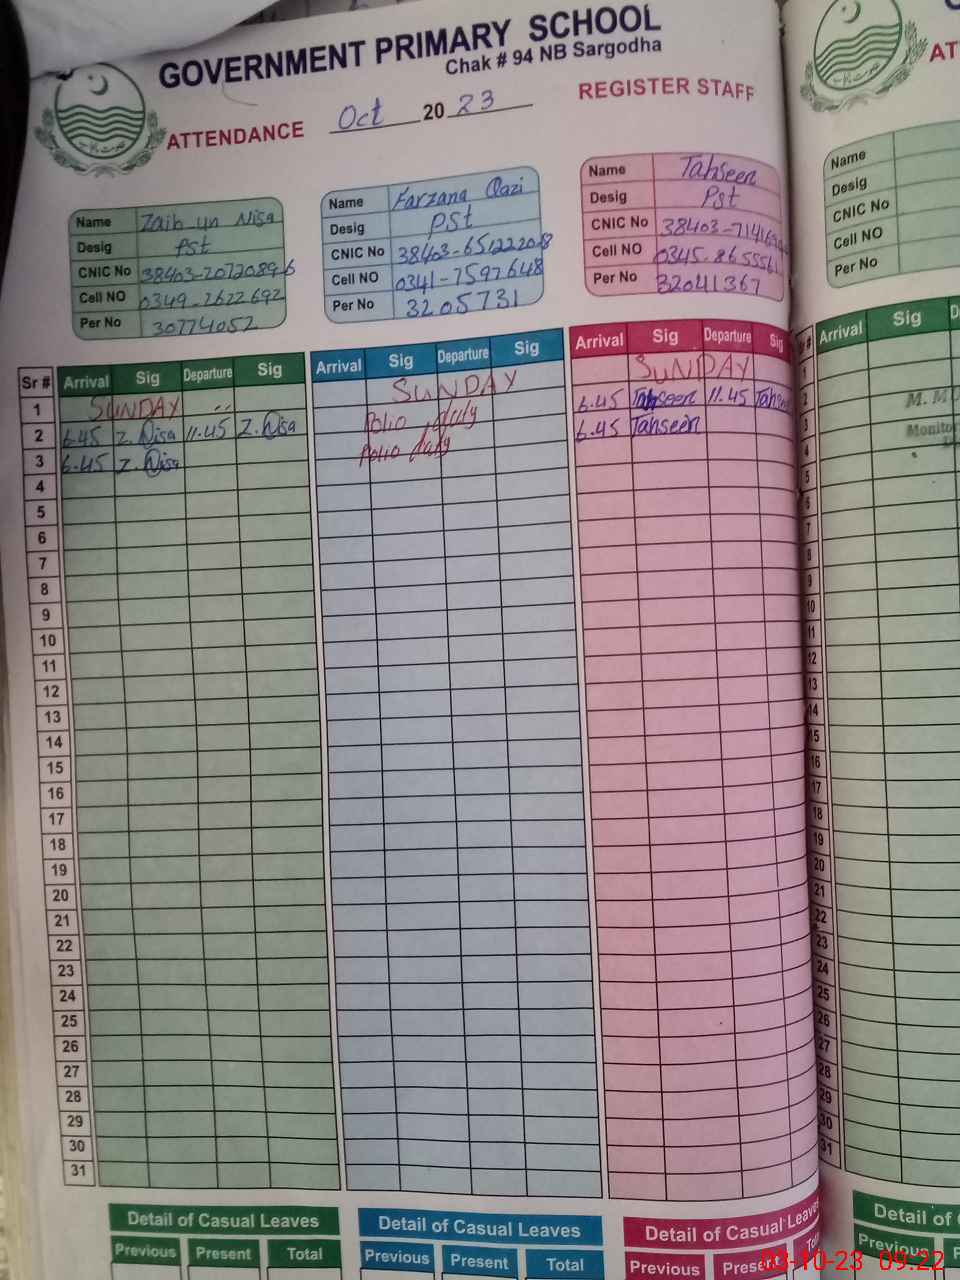 GOVERNMENT PRIMARY SCHOOL
Chak # 94 NB Sargodha
ATTENDANCE Oct 2023 REGISTER STAFF
Name Zaib un Nisa
Desig Pst
CNIC No
Cell NO 0349-7622692
Per No 30774052
Name Farzana Qazi
Desig PST
CNIC No 38403-651222028
Cell NO 0341-7597648
Per No 3205731
Name Tahseen
Desig Pst
CNIC No
Cell NO
Per No 32041367
Name
Desig
CNIC No
Cell NO
Per No
Sr # Arrival Sig Departure Sig Arrival Sig Departure Sig Arrival Sig Departure Sig Arrival Sig
1 SUNDAY SUNDAY SUNDAY
2 6.45 Z.Nisa 11.45 Z.Nisa Polio duty 6.45 Tahseen 11.45
3 6.45 Z.Nisa Polio duty 6.45 Tahseen
4
5
6
7
8
9
10
11
12
13
14
15
16
17
18
19
20
21
22
23
24
25
26
27
28
29
30
31
Detail of Casual Leaves Detail of Casual Leaves Detail of Casual Leaves Detail of
Previous Present Total Previous Present Total Previous Previous
03-10-23 09:22